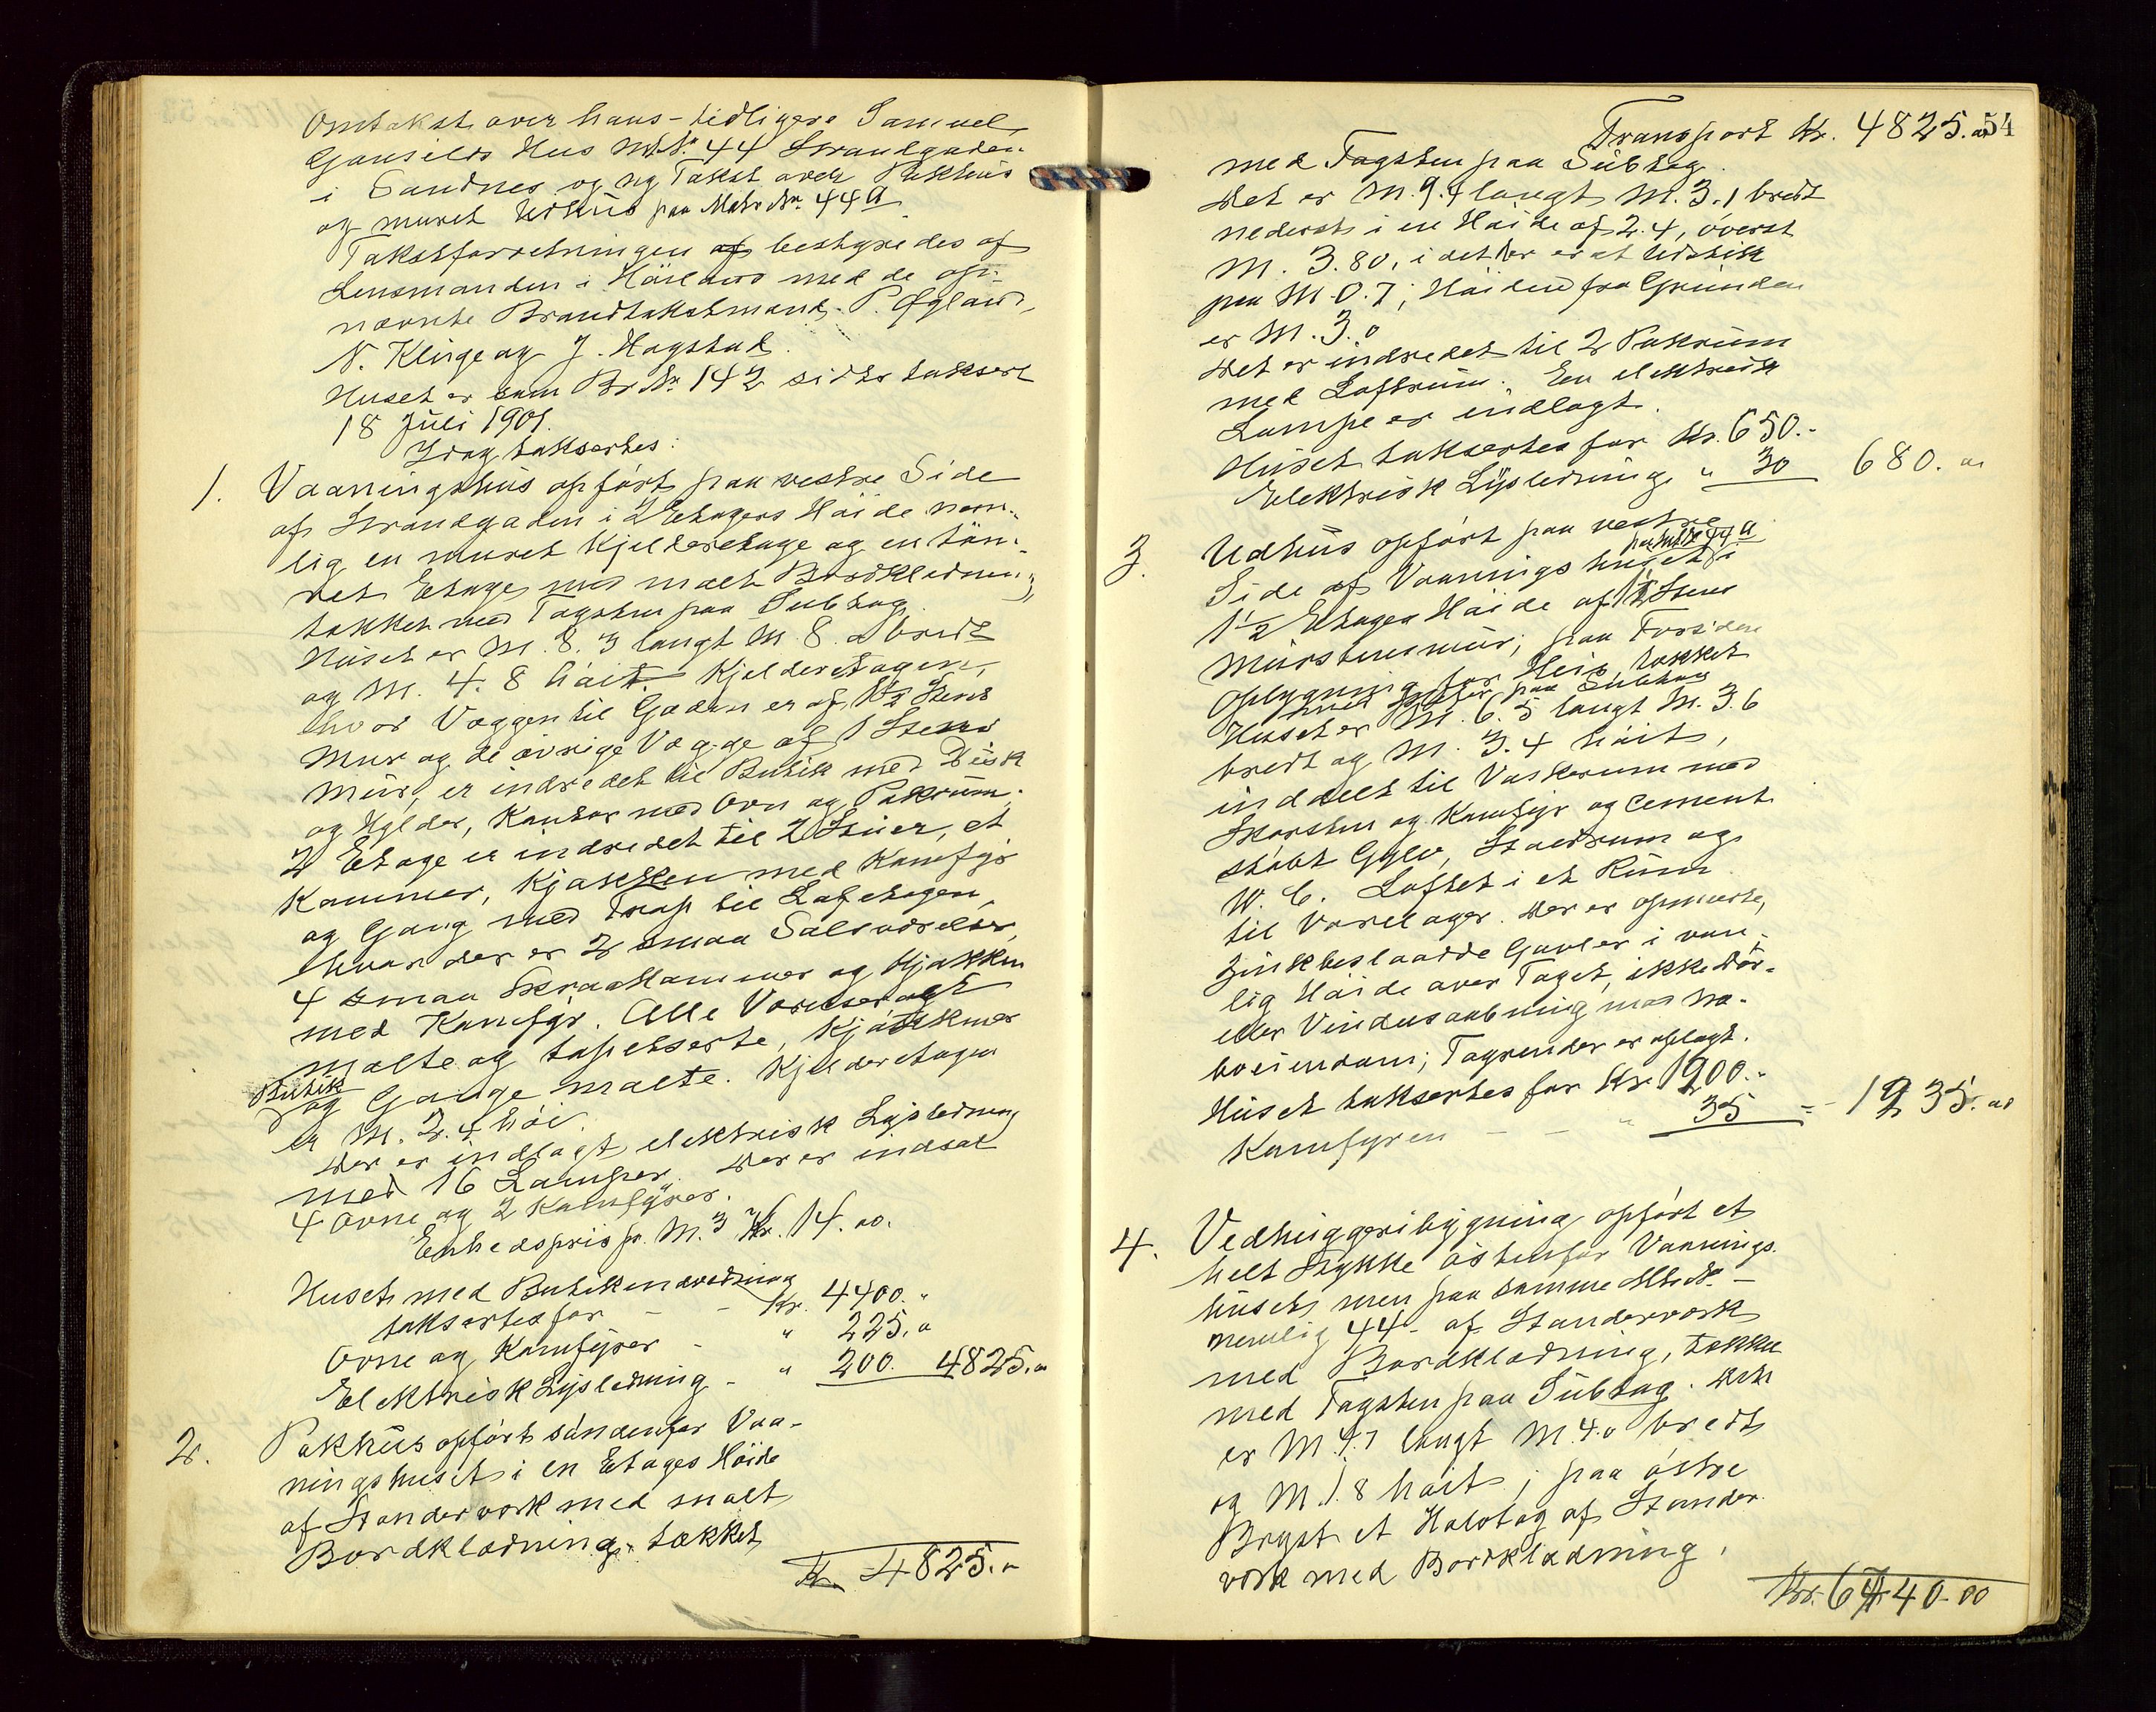 Omtakst over hans - tidligere Samuel
Gauselds Hus M.No 44 Strandgaden
i Sandnes og ny Takst over Pakhus
og muret Udhus paa Matr No. 44a
Takstforretningen af bestyredes af
Lensmanden i Höiland med de op-
nævnte Brandtakstmænd. P. Øgland,
N. Klinge og J. Hogstad.
Huset er som Br No 142 sidst taksert
18 Juli 1901.
Idag taksertes:
1. Vaaningshus opført paa vestre Side
af Strandgaden i 2 Etagers Höide nem-
lig en muret Kjelderetage og en töm-
ret Etage med malt Bordklædning,
tækket med Tagsten paa Subtag.
Huset er M. 8.3 langt M. 8.0 bredt
og M. 4.8 höit. Kjelderetagen,
hvor Væggen til Gaden er af 1½ Stens
Mur og de övrige Vægge af 1 Stens
Mur, er indredet til Butik med Disk
og Hylder, Kontor med Ovn og Pakrum.
2 Etage er indredet til 2 Stuer, et
Kammer, Kjøkken med Komfyr
og Gang med Trap til Loftetagen,
hvor der er 2 smaa Salsværelser,
4 smaa Skraakammer og Kjøkken
med Komfyr. Alle Værelser er
malte og tapetserte, Kjøkkener
Butik
og Gange malte. Kjelderetagen
er M. 2.4 höi.
Der er indlagt elektrisk Lysledning
med 16 Lamper. Der er indsat
4 Ovne og 2 Komfyrer.
Enhedspris pr. M.3 Kr. 14.00.
Huset med Butikindredning
taksertes for - - Kr. 4400. "
Ovne og Komfyrer - " 225. "
Elektrisk Lysledning - " 200. 4825. "
2. Pakhus opført söndenfor Vaa-
ningshuset i en Etages Höide
af Standerværk med malt
Bordklædning, tækket
Kr. 4825. "
54
Transport Kr. 4825. "
med Tagsten paa Subtag.
Det er M. 9.4 langt M. 3.1 bredt
nederst i en Höide af 2.4, överst
M. 3.80, i det der er et Udstik
paa M 0.7; Höiden fra Grunden
er M. 3.0
Det er indredet til 2 Pakrum
med Loftrum. En elektrisk
Lampe er indlagt.
Huset taksertes for Kr. 650.-
Elektrisk Lysledning " 30 680. "
3. Udhus opført paa vestre
paa M.No 44a
Side af Vaaningshuset i
1½ Etages Höide af 1 Stens
Murstensmur; paa Forsiden
Opbygning for Heis, tækket
med Skifer paa Subtag
Huset er M. 6.5 langt M. 3.6
bredt og M. 3.4 höit,
inddelt til Vaskerum med
Skorsten og Komfyr og Cement
stöbt Gulv, Staldrum og
W. C. Loftet i et Rum
til Varelager. Der er opmurte,
Zinkbeslaadde Gavler i van-
lig Höide over Taget, ikke Dör-
eller Vinduesaabning mod Na-
boeiendom; Tagrender er oplagt.
Huset taksertes for Kr. 1200.-
Komfyren - - " 35 = - 1235. "
4. Vedhuggeribygning, opført et
helt Stykke östenfor Vaanings-
huset, men paa samme M.No. -
nemlig 44 - af Standerværk
med Bordklædning, tækket
med Tagsten paa Subtag. Det
er M. 9.7 langt M. 4.0 bredt
og M. 1.8 höit; paa östre
Bryst et Halvtag af Stander
værk med Bordklædning,
Kr. 6740-00